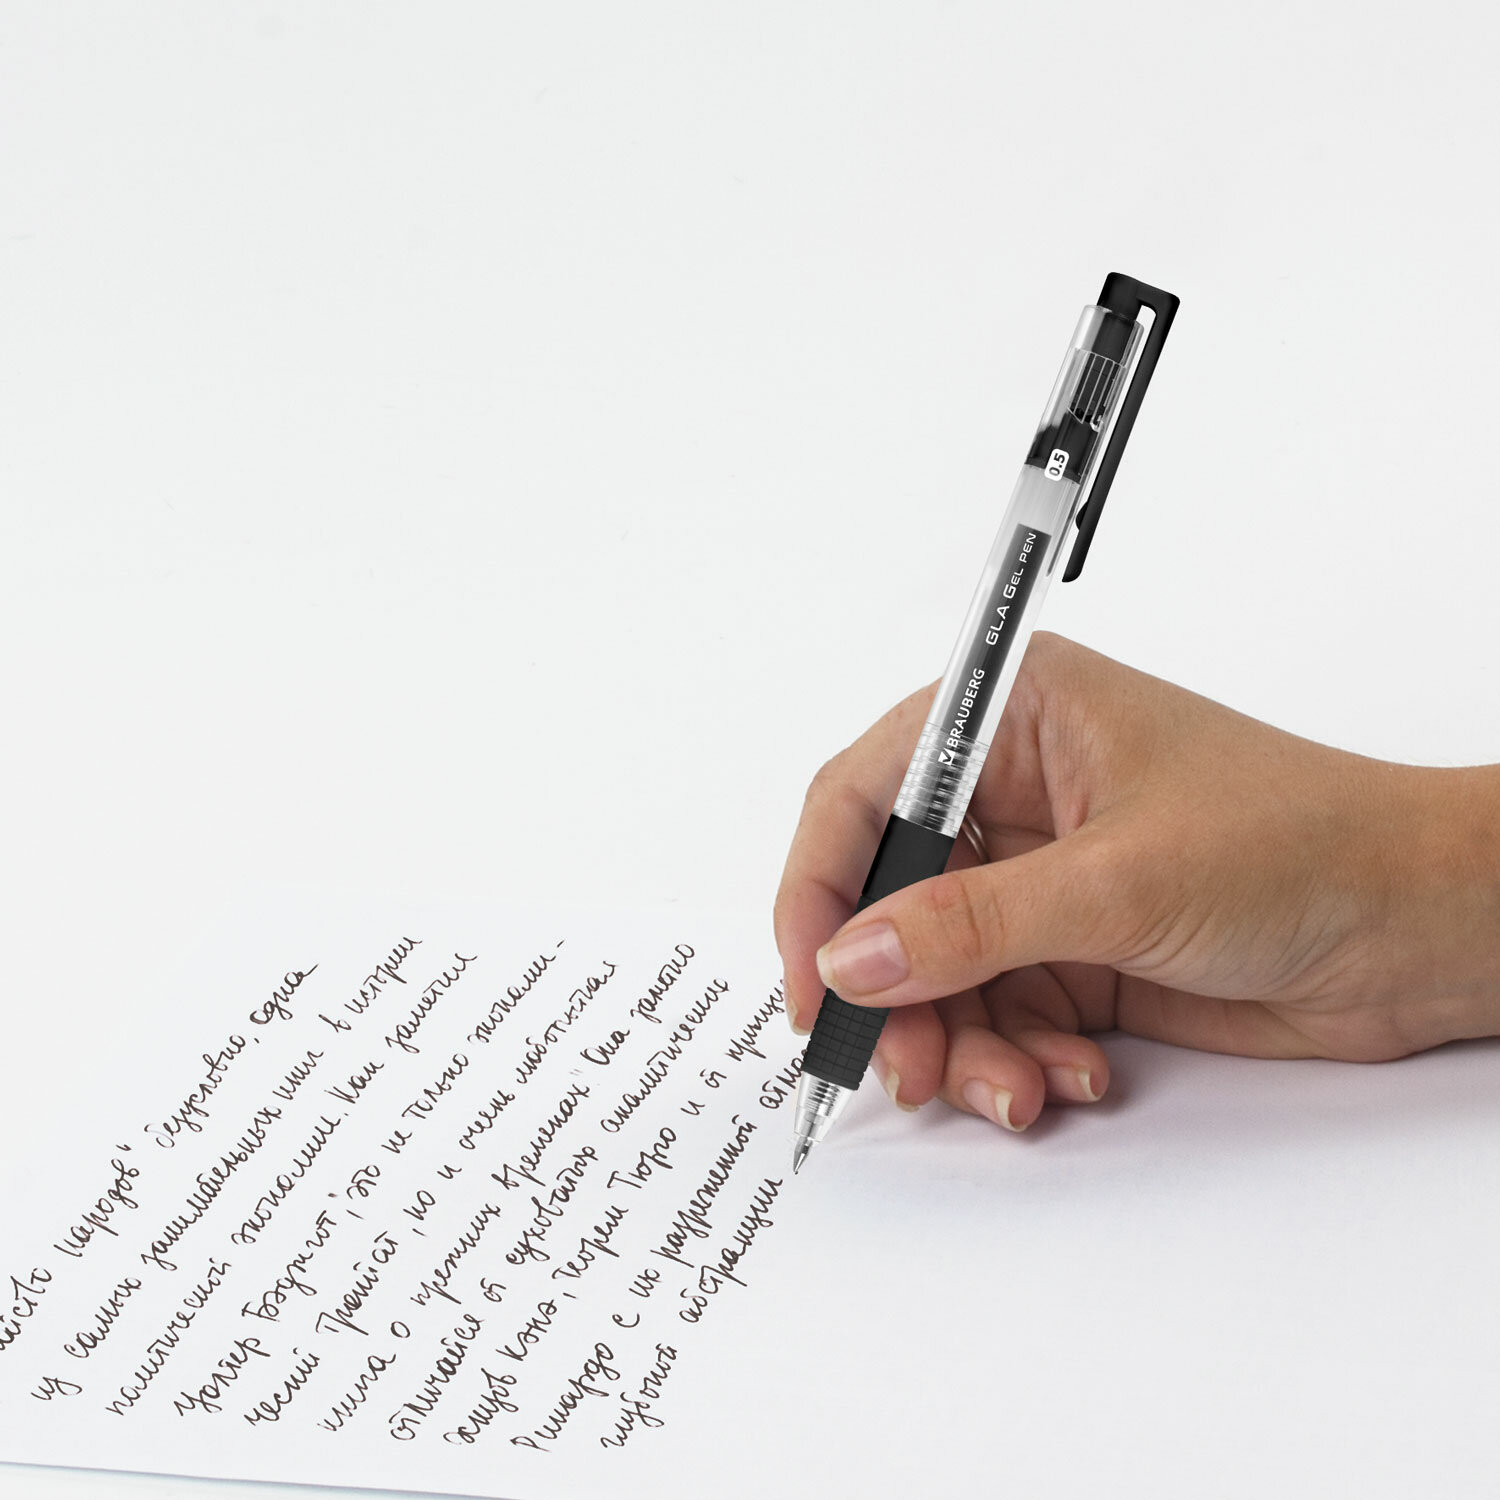 0.5
GLA GEL PEN
BRAUBERG
народов" безусловно, одна
из самых занимательных книг в истории
политической экономии. Как заметил
Уолтер Бэджгот, "это не только экономи-
ческий трактат, но и очень любопытная
книга о прежних временах." Она заметно
отличается от суховатых аналитических
Кэнэ, Теорем Тюрго и от
Рикардо с их разреженной
глубокой абстракции